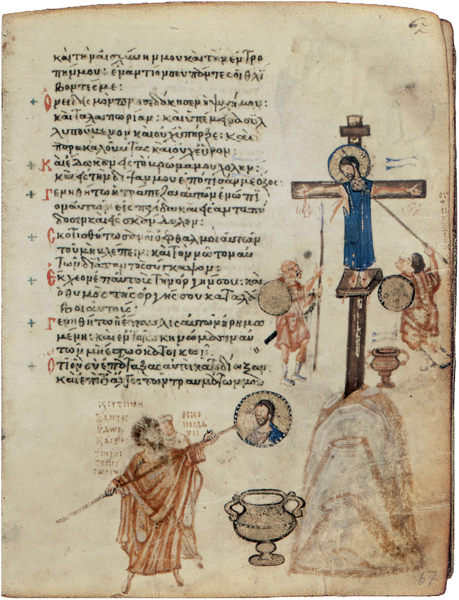 καὶ τὴν αἰσχύνην μου καὶ τὴν ἐντρο
πήν μου· ἐναντίον σου πάντες οἱ θλί
βοντές με·
Ὀνειδισμὸν προσεδόκησεν ἡ ψυχή μου·
καὶ ταλαιπωρίαν· καὶ ὑπέμεινα συλ
λυπούμενον καὶ οὐχ ὑπῆρξε· καὶ
παρακαλοῦντας καὶ οὐχ εὗρον·
Καὶ ἔδωκαν εἰς τὸ βρῶμά μου χολήν·
καὶ εἰς τὴν δίψαν μου ἐπότισάν με ὄξος·
Γενηθήτω ἡ τράπεζα αὐτῶν ἐνώπι
ον αὐτῶν εἰς παγίδα καὶ εἰς ἀνταπό
δοσιν καὶ εἰς σκάνδαλον·
Σκοτισθήτωσαν οἱ ὀφθαλμοὶ αὐτῶν
τοῦ μὴ βλέπειν· καὶ τὸν νῶτον αὐ
τῶν διὰ παντὸς σύγκαμψον·
Ἔκχεον ἐπ' αὐτοὺς τὴν ὀργήν σου· καὶ
ὁ θυμὸς τῆς ὀργῆς σου καταλά
βοι αὐτούς·
Γενηθήτω ἡ ἔπαυλις αὐτῶν ἠρημω
μένη· καὶ ἐν τοῖς σκηνώμασιν αὐ
τῶν μὴ ἔστω ὁ κατοικῶν·
Ὅτι ὃν σὺ ἐπάταξας αὐτοὶ κατεδίωξαν
καὶ ἐπὶ τὸ ἄλγος τῶν τραυμάτων μου
67